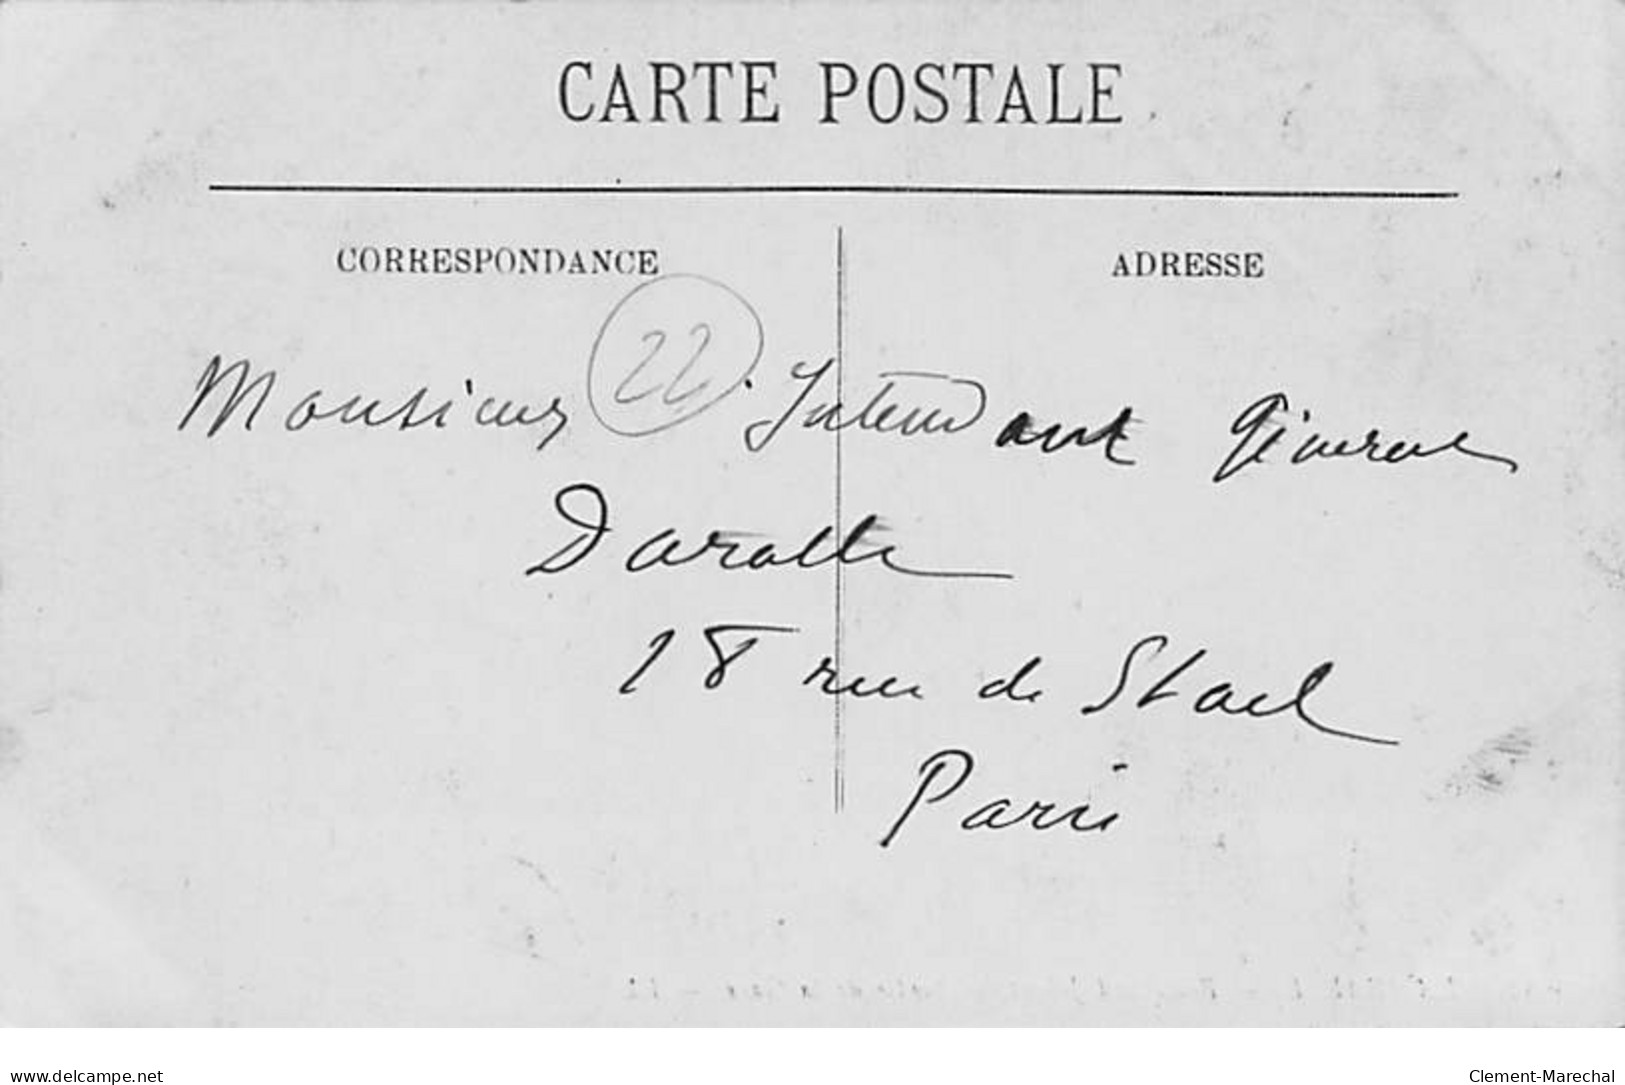 CARTE POSTALE
CORRESPONDANCE
ADRESSE
22
Monsieur Intendant Général
Darolle
18 rue de Stael
Paris
delcampe.net
Clement-Marechal